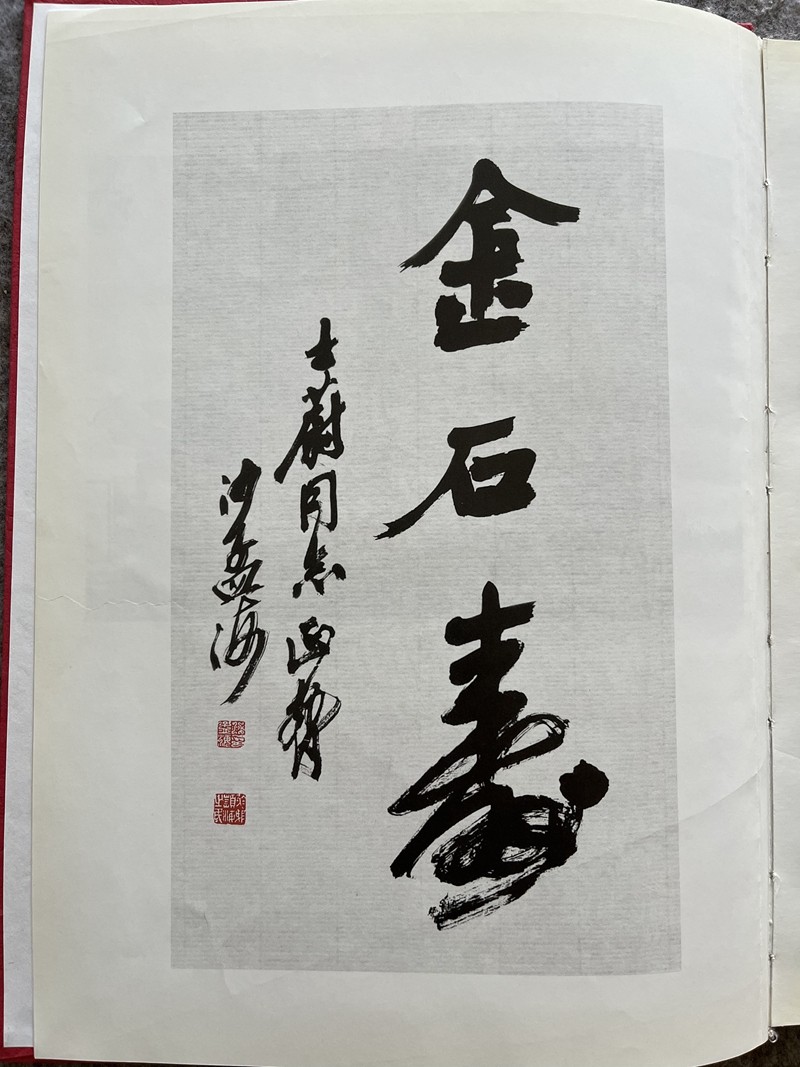 金石寿
士蔚同志正腕
沙孟海